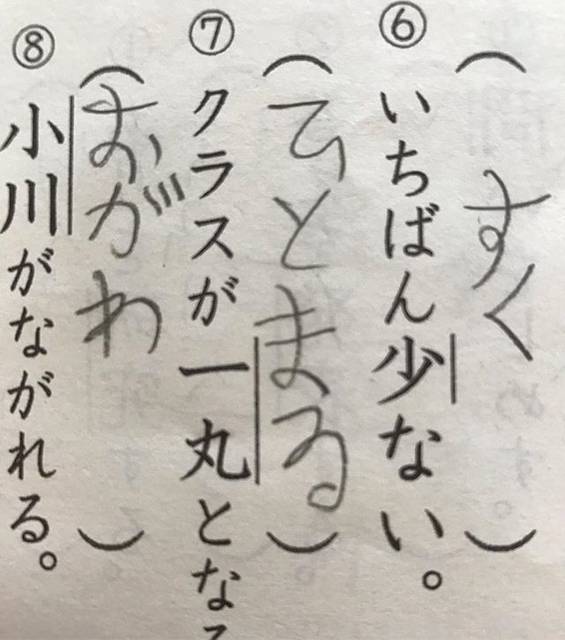 ⑥
（すく）
いちばん少ない。
⑦
（ひとまる）
クラスが一丸とな
⑧
（おがわ）
小川がながれる。